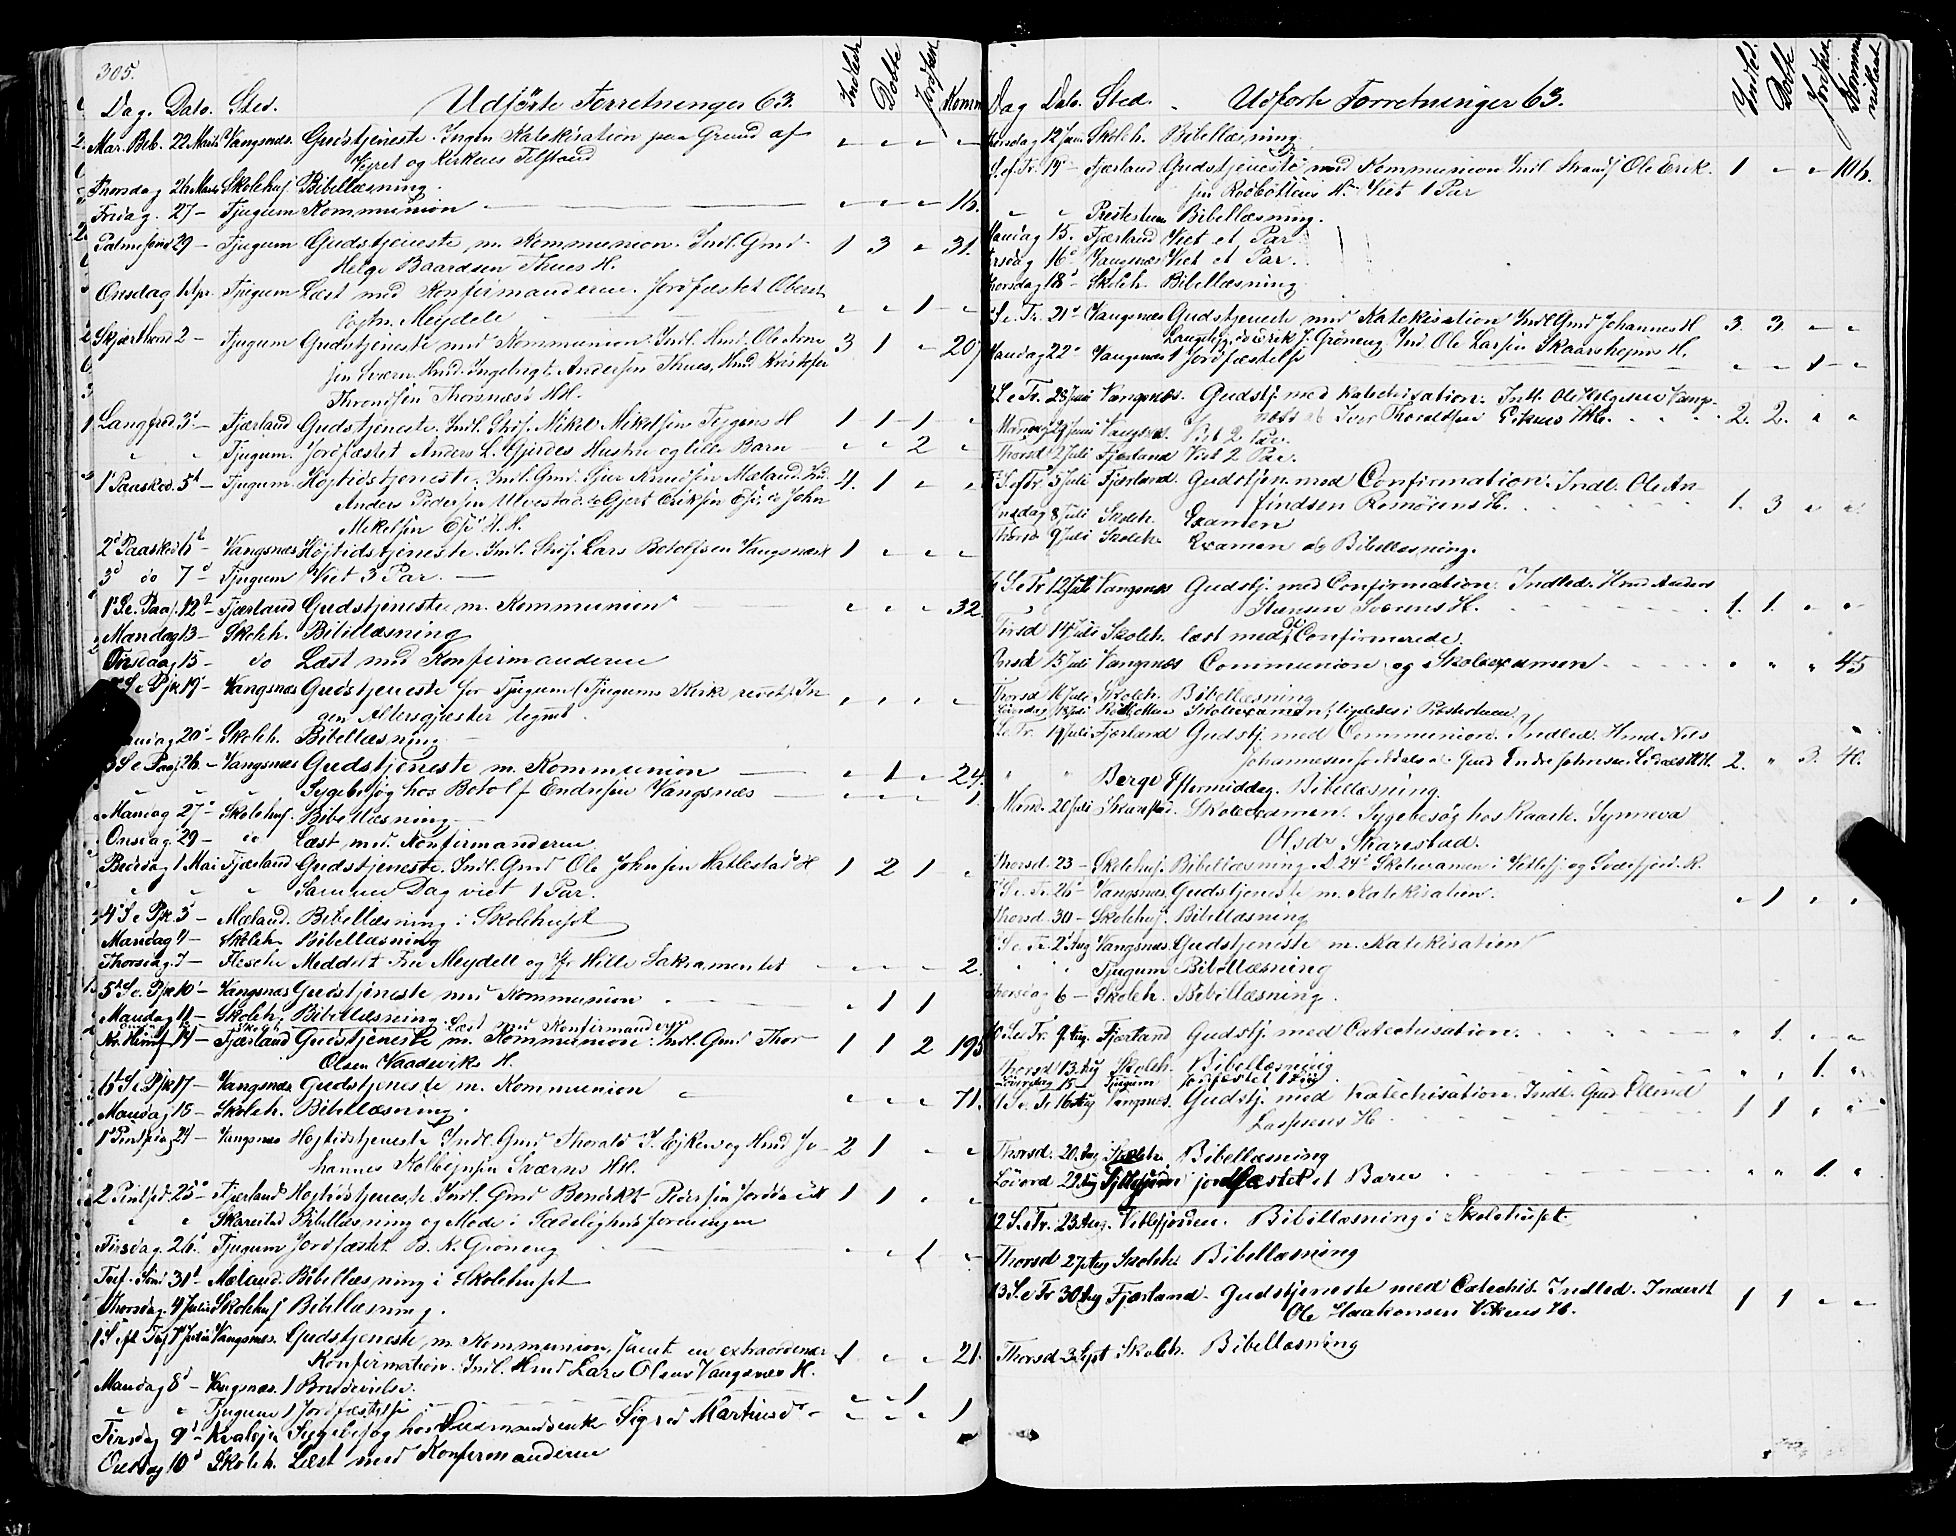 305.
Dag. Dato. Sted. Udförte Forretninger 63. Indledte Döbte Jordfæst. Komm
Mar. Beb. 22 Marts Vangsnæs. Gudstjeneste. Ingen Katekisation paa Grund af „ „ „ „
Vejret og Kirkens Tilstand
Thorsdag 26 Marts Skolehus Bibellæsning.
Fredag. 27 – Tjugum Kommunion „ „ „ 16.
Palmesönd 29 – Tjugum Gudstjeneste m. Kommunion. Indl. Gmd. 1 3 „ 31.
Helge Baardsen Thues H.
Onsdag 1 Apr. Tjugum Læst med Konfirmanderne. Jordfæstet Oberst
Meydell „ „ 1 „
Skjærthorsd 2 – Tjugum Gudstjeneste med Kommunion. Indl. 3 1 „ 207
Sværn. Hmd. Ingebrigt Andersen Thues, Hmd. Kristofer
Throndsen Thornæs HH.
Langfred 3 – Fjærland Gudstjeneste. Indl. Mikel Mikelsen H 1 1 1 „
„ „ Tjugum. Jordfæstet Anders L. Gjerdes Hustru og lille Barn „ „ 2 „
1 Paasked. 5 – Tjugum Höjtidstjeneste. Indl. Gmd. Sjur Knudsen Mæland. 4. 1 „ „
Anders Pedersen Ulvestad, Gjert Eriksen Ese, John
Mikelsen Ese H.H.
2 Paasked 6 – Vangsnæs Höjtidstjeneste. Indl. Lars Botolfsen Vangsnæs H 1 „ „ „
3 do 7 – Tjugum Viet 3 Par. –
1 S. e. Paas. 12 – Fjærland Gudstjeneste m. Kommunion „ „ „ 32.
Mandag 13 – Skoleh. Bibellæsning
15 – do Læst med Konfirmanderne
S. e. Psk 19 – Vangsnæs Gudstjeneste for Tjugum (Tjugums Kirke revet). In- „ „ „ „
gen Altersgjæster tegnet.
20 – Skoleh. Bibellæsning
S. e. Paas. 26. – Vangsnæs Gudstjeneste m. Kommunion „ 1 „ 24.
„ „ „ Sygebesög hos Botolf Endresen Vangsnæs „ „ „ 1
Mandag 27 – Skolehus. Bibellæsning
Onsdag 29 – do Læst med Konfirmanderne
Bededag 1 Mai Fjærland Gudstjeneste. Indl. Gmd Ole Johnsen Hatlestad H 1 2 1 „
„ „ „ Samme Dag viet 1 Par.
4 S. e. Psk. 3 – Mæland. Bibellæsning i Skolehuset
Mandag 4 – Skoleh Bibellæsning
Thorsdag 7 – Flesche Meddelt Fru Meydell og Fr Hille Sakramentet „ „ „ 2.
5 S. e. Psk 10 – Vangsnæs Gudstjeneste med Kommunion „ 1 1
Mandag 11 – Skoleh. Bibellæsning. Læst med Konfirmanderne
Kr. Himf 14 – Fjærland Gudstjeneste m. Kommunion: Indl. Gmd Thor 1 1 2 195
Olsen Vaadeviks H.
6 S. e. Psk 17 – Vangsnæs Gudstjeneste m. Kommunion „ „ „ 71.
Mandag 18 – Skoleh. Bibellæsning.
1 Pintsedag 24 – Vangsnæs Höjtidstjeneste. Indl. Gmd Thorald I. Ejken og Hmd Jo- 2 1 „ „
hannes Kolbejnsen Sværns HH.
2 Pintsed. 25 – Fjærland Höjtidstjeneste. Indl. Gmd Benedikt Pedersen Jordals H 1 1 „ „
„ „ Skarestad Bibellæsning og Möde i Sædelighedsforeningen
Tirsdag. 26. Tjugum Jordfæstet B. K. Gröneng „ „ 1 „
Tref. Sönd 31 – Mæland. Bibellæsning i Skolehuset
Thorsdag. 4 Juni Skolehus Bibellæsning.
1 S. eft Tref 7 Juni Vangsnæs. Gudstjeneste m. Kommunion samt en extraordinær 1 „ „ 21.
Konfirmation. Indl. Hmd Lars Olsens Vangsnæs H.
Mandag 8 – Vangsnæs. 1 Brudevielse.
„ „ Tjugum 1 Jordfæstelse „ „ 1
Tirsdag 9 – Sygebesög hos Sigrid Martinsd. „ „ „ 1
Onsdag 10 Skoleh. Læst med Konfirmanderne
Dag Dato. Sted. Udförte Forretninger 63. Indled. Döbte Jordfæst. Kommunikant
Skoleh. Bibellæsning.
S. ef. Tr. 14 – Fjærland Gudstjeneste med Kommunion. Indl. Strands. Ole Erik- 1 „ „ 106.
sen H. Viet 1 Par
„ „ Prestestuen Bibellæsning.
Mandag 15. Fjærland Viet et Par
Tirsdag 16 Vangsnæs Viet et Par.
Thorsdag 18 – Skoleh. Bibellæsning
S. e. Tr. 21 – Vangsnæs Gudstjeneste med Katekisation Indl Gmd Johannes H 3. 3. „ „
Erik J. Gröneng. Ole Larsen Skaarshejms H.
Mandag 22 – Vangsnæs 1 Jordfæstelse „ „ 1 „
S. e. Tr. 28 Juni Vangsnæs. Gudstj. med Katechisation. Indl. Ole Helgesen Vang-
næs og Iver Thoraldsen Eikens HH. 2. 2. „ „
Mandag 29 Juni Vangsnæs. Viet 2 Par.
Thorsd 2 Juli Fjærland Viet 2 Par.
S. e. Tr. 5 Juli Fjærland. Gudstjen. med Confirmation. Indl. Ole An-
findsen Romörens H. 1. 3 „ „
Onsdag 8 Juli Skoleh. Examen
Thorsd 9 Juli Skoleh. Examen og Bibellæsning.
S. e. Tr 12 Juli Vangsnæs Gudstj. med Confirmation. Indled. Hmd Anders
Stensen Sværens H. 1. 1. „ „
Tirsd 14 Juli Skoleh. læst med de Confirmerede.
Onsd 15 Juli Vangsnæs Communion og Skoleexamen „ „ „ 45
Thorsd 16 Juli Skoleh. Bibellæsning
18 Juli Skoleexamen, ligeledes i Præstestuen
S. e. Tr. 19 Juli Fjærland Gudstj. med Communion. Indled. Hmd Nils
Johannesen og Gmd Endre Johnsen HH. 2. „ 3. 40.
„ „ Berge Eftermiddag. Bibellæsning
Mand. 20 Juli Skarestad. Skoleexamen. Sygebesög hos Kaark. Synneva
Olsdr Skarestad.
Thorsd. 23 – Skolehus. Bibellæsning D. 24 Skoleexamen i Vetlefj. og Sværefjord. K.
S. e. Tr. 26 – Vangsnæs. Gudstjeneste m. Katekisation. „ 1 „ „
Thorsd. 30 – Skolehus. Bibellæsning
S. e. Tr. 2 Aug Vangsnæs. Gudstjeneste m. Katekisation
„ „ Tjugum Bibellæsning
Thorsdag 6 – Skoleh. Bibellæsning.
10 S. e. Tr. 9. Aug. Fjærland Gudstj. med Catechisation. „ 1. „ „
Thorsd 13. Aug Skoleh. Bibellæsning
Löverdag 15 – Tjugum Jordfæstet 1 Lig. „ „ 1. „
11 S. e. Tr 16 Aug Vangsnæs. Gudstj. med Katechisation. Indl. Gmd. Ellend
Lassesens H. 1 1 „ „
Thorsd. 20. Aug Skoleh. Bibellæsning
Löverd 22 Aug jordfæstet et Barn „ „ 1. „
12 S. e. Tr. 23 Aug. Vetlefjorden. Bibellæsning i Skolehuset.
Thorsd 27 Aug Skoleh. Bibellæsning
13 S. e. Tr 30 Aug Fjærland. Gudstjeneste med Catechis. Indled. Inderst
Ole Haakonsen Vikens H. 1 1 „ „
Thorsd 3 Sept Skoleh. Bibellæsning